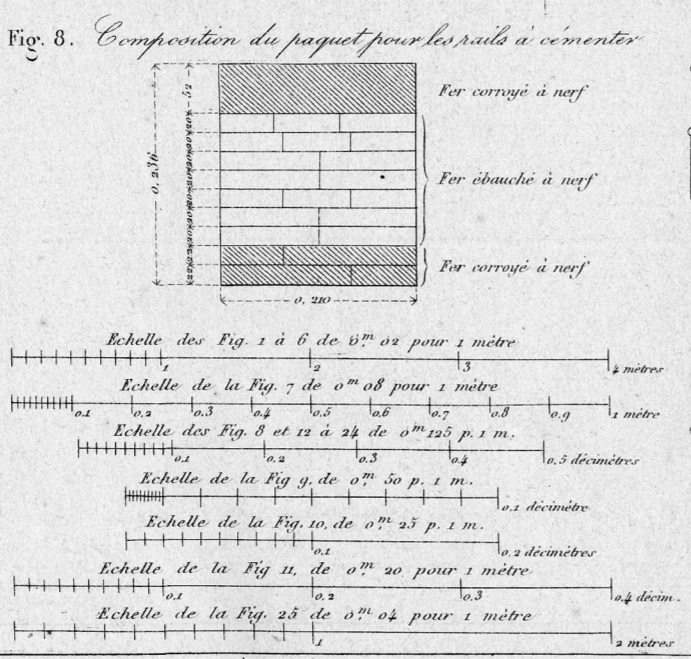 Fig. 8. Composition du paquet pour les rails à cémenter
52
Fer corroyé à nerf
0,236
Fer ébauché à nerf
Fer corroyé à nerf
0,210
Echelle des Fig. 1 à 6 de 0m, 02 pour 1 mètre
1 2 3 4 mètres
Echelle de la Fig. 7 de 0m 08 pour 1 mètre
0.1 0.2 0.3 0.4 0.5 0.6 0.7 0.8 0.9 1 mètre
Echelle des Fig. 8 et 12 à 24 de 0m, 125 p. 1 m.
0.1 0.2 0.3 0.4 0.5 décimètres
Echelle de la Fig 9, de 0m, 50 p. 1 m.
0.1 décimètre
Echelle de la Fig. 10, de 0m, 25 p. 1 m.
0.1 0.2 décimètres
Echelle de la Fig 11, de 0m, 20 pour 1 mètre
0.1 0.2 0.3 0.4 décim.
Echelle de la Fig. 25 de 0m, 04 pour 1 mètre
1 2 mètres